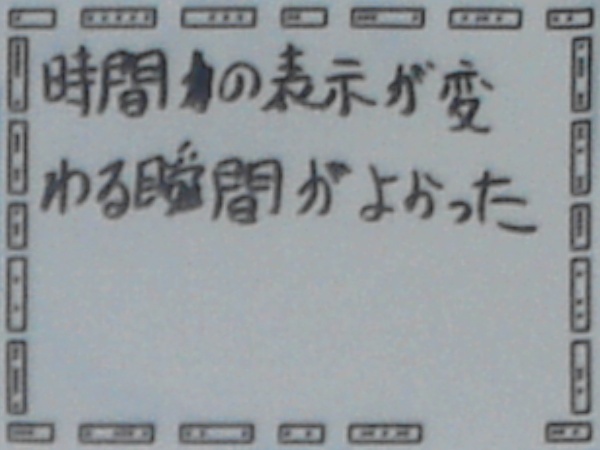 時間の表示が変
わる瞬間がよかった